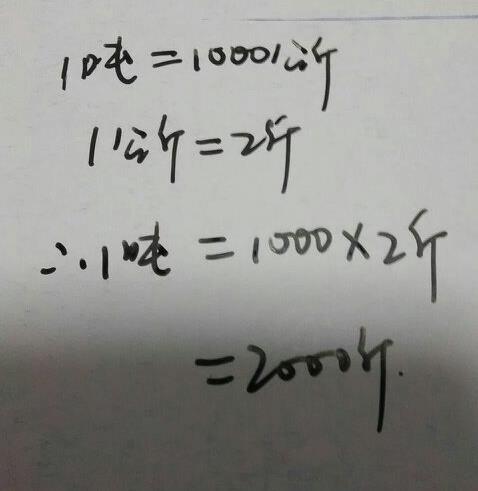 1吨=1000公斤
1公斤=2斤
∴1吨=1000×2斤
=2000斤.